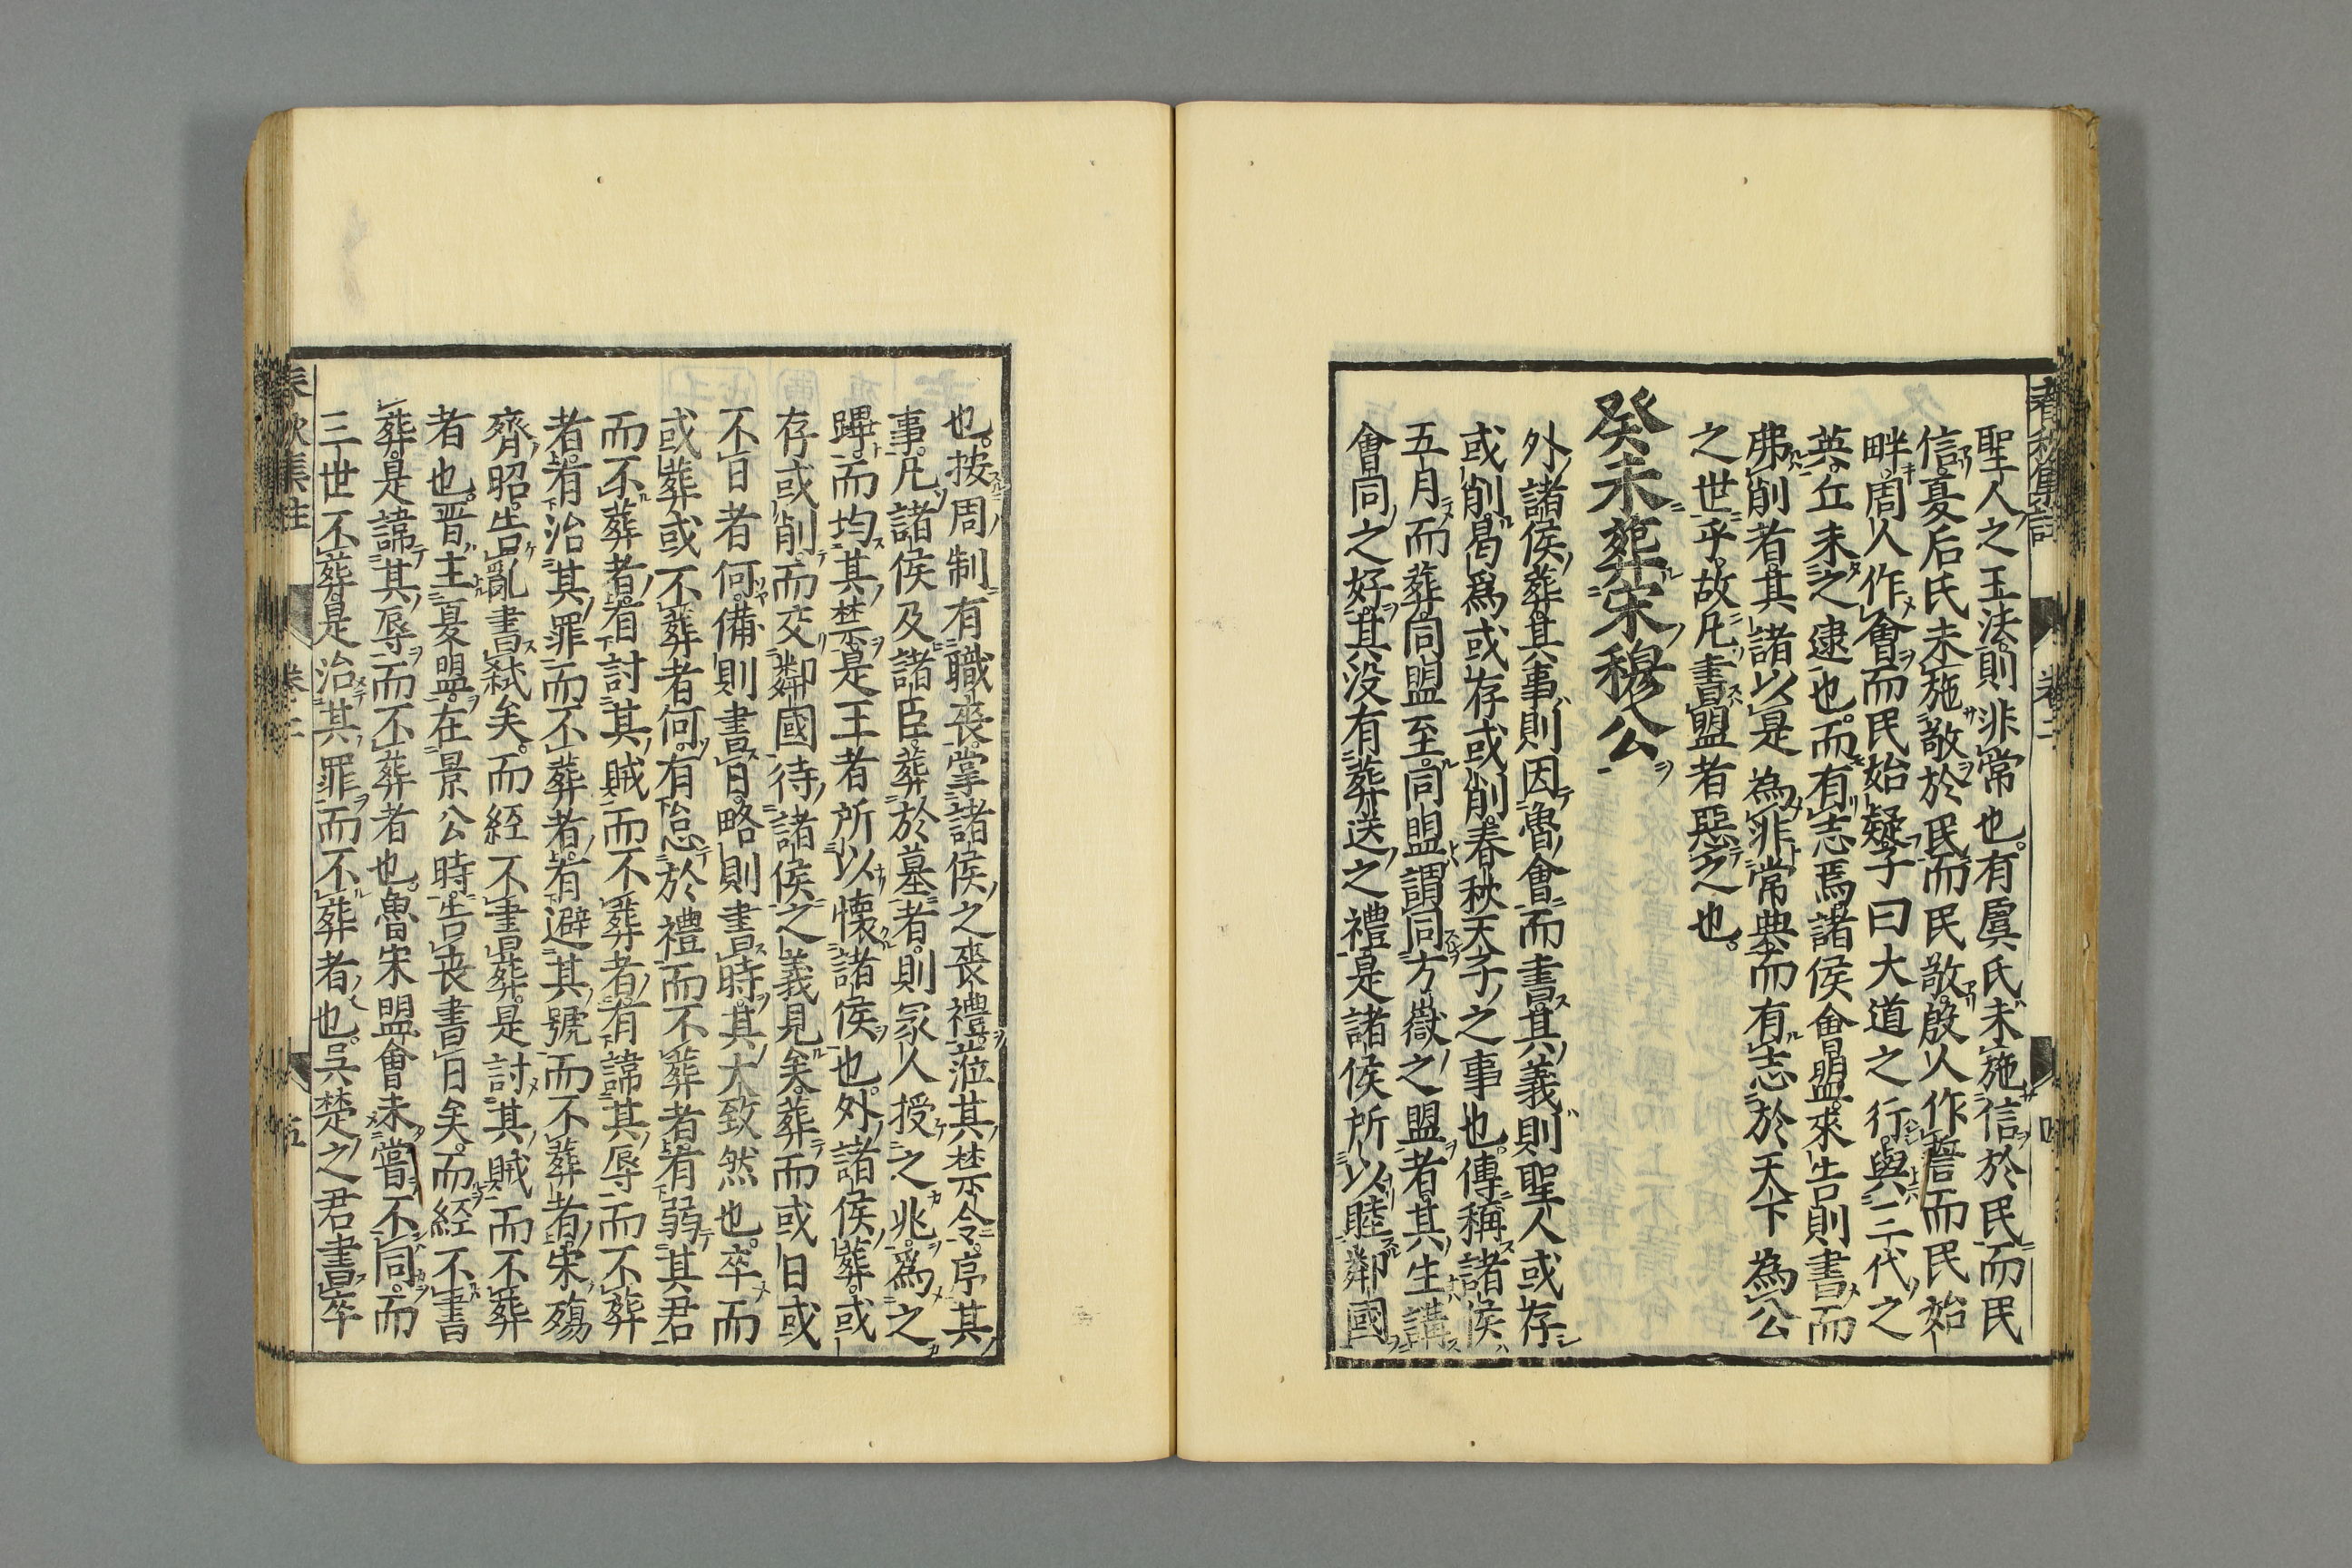 聖人之王法則非常也。有虞氏未施信於民而民
信。夏后氏未施敬於民而民敬。殷人作誓而民始
畔。周人作會而民始疑。子曰大道之行與三代之
英。丘未之逮也。而有志焉諸侯會盟。來告則書而
弗削者。其諸以是為非常典而有志於天下為公
之世乎。故凡書盟者惡之也。
癸未葬宋穆公
外諸侯葬。其事則因魯會而書。其義則聖人或存
或削。曷為或存或削。春秋天子之事也。傳稱諸侯
五月而葬。同盟至。同盟謂同方嶽之盟者。其生講
會同之好。其没有葬送之禮。是諸侯所以睦鄰國
也。按周制有職喪。掌諸侯之喪禮。蒞其禁令。序其
事。凡諸侯及諸臣。葬於墓者。則冢人授之兆。爲之
蹕。而均其禁。是王者所以懷諸侯也。外諸侯葬。或
存或削。而交鄰國待諸侯之義見矣。葬而或日或
不日者何。備則書日。略則書時。其大致然也。卒而
或葬或不葬者何。有怠於禮而不葬者。有弱其君
而不葬者。有討其賊而不葬者。有諱其辱而不葬
者。有治其罪而不葬者。有避其號而不葬者。宋殤
齊昭。告亂書弒矣。而經不書葬。是討其賊而不葬
者也。晋主夏盟。在景公時。告喪書日矣。而經不書
葬。是諱其辱而不葬者也。魯宋盟會未嘗不同。而
三世不葬。是治其罪而不葬者也。吳楚之君書卒
春秋集註 卷二 五